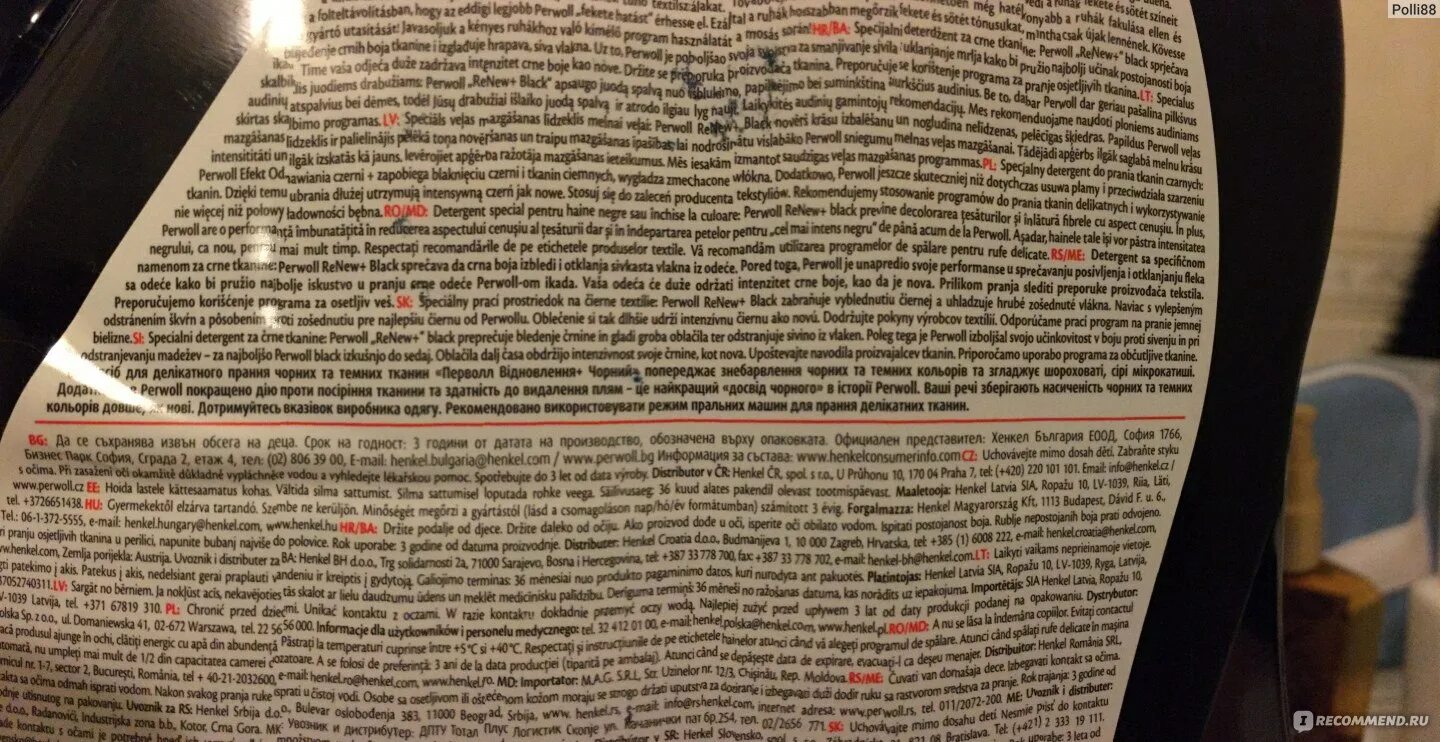 Polli88
a folteltávolításban, hogy az eddigi legjobb Perwoll „fekete hatást” érhesse el. Ezáltal a ruhák hosszabban megőrzik fekete és sötét tónusukat, mintha csak újak lennének. Kövesse
gyártó utasítását! Javasoljuk a kényes ruhákhoz való kímélő program használatát a mosás során! HR/BA: Specijalni deterdžent za crne tkanine: Perwoll „ReNew+” black sprječava
bljeđenje crnih boja tkanine i izglađuje hrapava, siva vlakna. Uz to, Perwoll je poboljšao svoja svojstva za smanjivanje sivila i uklanjanje mrlja kako bi pružio najbolji učinak postojanosti boja
ikada. Time vaša odjeća duže zadržava intenzitet crne boje kao nove. Držite se preporuka proizvođača tkanina. Preporučuje se korištenje programa za pranje osjetljivih tkanina. LT: Specialus
skalbiklis juodiems drabužiams: Perwoll „ReNew+ Black” apsaugo juodą spalvą nuo išblukimo, papildomo bei suminkština šiurkščius audinius. Be to, dabar Perwoll dar geriau pašalina pilkšvus
audinių atspalvius bei dėmes, todėl Jūsų drabužiai išlaiko juodą spalvą ir atrodo ilgiau lyg nauji. Laikykitės audinių gamintojų rekomendacijų. Mes rekomenduojame naudoti ploniems audiniams
skirtas skalbimo programas. LV: Speciāls veļas mazgāšanas līdzeklis melnai veļai: Perwoll ReNew+ Black novērš krāsu izbalēšanu un nogludina nelīdzenas, pelēcīgas šķiedras. Papildus Perwoll veļas
mazgāšanas līdzeklis ir palielinājis pelēkā toņa novēršanas un traipu mazgāšanas īpašības, lai nodrošinātu vislabāko Perwoll sniegumu melnas veļas mazgāšanai. Tādējādi apģērbs ilgāk saglabā melnu krāsu
intensitāti un ilgāk izskatās kā jauns. Ievērojiet apģērba ražotāja mazgāšanas ieteikumus. Mēs iesakām izmantot saudzīgas veļas mazgāšanas programmas. PL: Specjalny detergent do prania tkanin czarnych:
Perwoll Efekt Odnawiania czerni + zapobiega blaknięciu czerni i tkanin ciemnych, wygładza zmechacone włókna. Dodatkowo, Perwoll jeszcze skuteczniej niż dotychczas usuwa plamy i przeciwdziała szarzeniu
tkanin. Dzięki temu ubrania dłużej utrzymują intensywną czerń jak nowe. Stosuj się do zaleceń producenta tekstyliów. Rekomendujemy stosowanie programów do prania tkanin delikatnych i wykorzystywanie
nie więcej niż połowy ładowności bębna. RO/MD: Detergent special pentru haine negre sau închise la culoare: Perwoll ReNew+ black previne decolorarea țesăturilor și înlătură fibrele cu aspect cenușiu. În plus,
Perwoll are o performanță îmbunătățită în reducerea aspectului cenușiu al țesăturii dar și în indepartarea petelor pentru „cel mai intens negru” de până acum de la Perwoll. Așadar, hainele tale își vor păstra intensitatea
negrului, ca nou, pentru mai mult timp. Respectați recomandările de pe etichetele produselor textile. Vă recomandăm utilizarea programelor de spălare pentru rufe delicate. RS/ME: Detergent sa specifičnom
namenom za crne tkanine: Perwoll ReNew+ Black sprečava da crna boja izbledi i otklanja sivkasta vlakna iz odeće. Pored toga, Perwoll je unapredio svoje performanse u sprečavanju posivljenja i otklanjanju fleka
sa odeće kako bi pružio najbolje iskustvo u pranju crne odeće Perwoll-om ikada. Vaša odeća će duže održati intenzitet crne boje, kao da je nova. Prilikom pranja slediti preporuke proizvođača tekstila.
Preporučujemo korišćenje programa za osetljiv veš. SK: Špeciálny prací prostriedok na čierne textílie: Perwoll ReNew+ Black zabraňuje vyblednutiu čiernej a uhladzuje hrubé zošednuté vlákna. Naviac s vylepšeným
odstránením škvŕn a pôsobením proti zošednutiu pre najlepšiu čiernu od Perwollu. Oblečenie si tak dlhšie udrží intenzívnu čiernu ako novú. Dodržujte pokyny výrobcov textílií. Odporúčame prací program na pranie jemnej
bielizne. SI: Specialni detergent za črne tkanine: Perwoll „ReNew+” black preprečuje bledenje črnine in gladi groba oblačila ter odstranjuje sivino iz vlaken. Poleg tega je Perwoll izboljšal svojo učinkovitost v boju proti sivenju in pri
odstranjevanju madežev – za najboljšo Perwoll black izkušnjo do sedaj. Oblačila dalj časa obdržijo intenzivnost svoje črnine, kot nova. Upoštevajte navodila proizvajalcev tkanin. Priporočamo uporabo programa za občutljive tkanine.
для делікатного прання чорних та темних тканин «Перволл Відновлення+ Чорний» попереджає знебарвлення чорних та темних кольорів та згладжує шороховаті, сірі мікрокатиші.
Perwoll покращено дію проти посіріння тканини та здатність до видалення плям – це найкращий «досвід чорного» в історії Perwoll. Ваші речі зберігають насиченість чорних та темних
кольорів довше, як нові. Дотримуйтесь вказівок виробника одягу. Рекомендовано використовувати режим пральних машин для прання делікатних тканин.
BG: Да се съхранява извън обсега на деца. Срок на годност: 3 години от датата на производство, обозначена върху опаковката. Официален представител: Хенкел България ЕООД, София 1766,
Бизнес Парк София, Сграда 2, етаж 4, тел: (02) 806 39 00, E-mail: henkel.bulgaria@henkel.com / www.perwoll.bg Информация за състава: www.henkelconsumerinfo.com CZ: Uchovávejte mimo dosah dětí. Zabraňte styku
s očima. Při zasažení očí okamžitě důkladně vypláchněte vodou a vyhledejte lékařskou pomoc. Spotřebujte do 3 let od data výroby. Distributor v ČR: Henkel ČR, spol. s r.o., U Průhonu 10, 170 04 Praha 7, tel: (+420) 220 101 101. Email: info@henkel.cz /
www.perwoll.cz EE: Hoida lastele kättesaamatus kohas. Vältida silma sattumist. Silma sattumisel loputada rohke veega. Säilivusaeg: 36 kuud alates pakendil olevast tootmispäevast. Maaletooja: Henkel Latvia SIA, Ropažu 10, LV-1039, Riia, Läti,
tel. +3726651438. HU: Gyermekektől elzárva tartandó. Szembe ne kerüljön. Minőségét megőrzi a gyártástól (lásd a csomagoláson nap/hó/év formátumban) számított 3 évig. Forgalmazza: Henkel Magyarország Kft, 1113 Budapest, Dávid F. u. 6.,
Tel.: 06-1-372-5555, e-mail: henkel.hungary@henkel.com, www.henkel.hu HR/BA: Držite podalje od djece. Držite daleko od očiju. Ako proizvod dođe u oči, isperite oči obilato vodom. Ispitati postojanost boja. Rublje nepostojanih boja prati odvojeno.
pranju osjetljivih tkanina u perilici, napunite bubanj najviše do polovice. Rok uporabe: 3 godine od datuma proizvodnje. Distributer: Henkel Croatia d.o.o., Budmanijeva 1, 10 000 Zagreb, Hrvatska, tel: +385 (1) 6008 222, e-mail: henkel.croatia@henkel.com,
www.henkel.com, Zemlja porijekla: Austrija. Uvoznik i distributer za BA: Henkel BH d.o.o., Trg solidarnosti 2a, 71000 Sarajevo, Bosna i Hercegovina, tel: +387 33 778 700, fax: +387 33 778 702, e-mail: henkel-bh@henkel.com. LT: Laikyti vaikams neprieinamoje vietoje.
patekimo į akis. Patekus į akis, nedelsiant gerai praplauti vandeniu ir kreiptis į gydytoją. Galiojimo terminas: 36 mėnesiai nuo produkto pagaminimo datos, kuri nurodyta ant pakuotės. Platintojas: Henkel Latvia SIA, Ropažu 10, LV-1039, Ryga, Latvija,
37052740311. LV: Sargāt no bērniem. Ja nokļūst acīs, nekavējoties tās skalot ar lielu daudzumu ūdens un meklēt medicīnisku palīdzību. Derīguma termiņš: 36 mēneši no ražošanas datuma, kas norādīts uz iepakojuma. Importētājs: SIA Henkel Latvia, Ropažu 10,
LV-1039 Latvija, tel. +371 67819 310. PL: Chronić przed dziećmi. Unikać kontaktu z oczami. W razie kontaktu dokładnie przemyć oczy wodą. Najlepiej zużyć przed upływem 3 lat od daty produkcji podanej na opakowaniu. Dystrybutor:
Polska Sp. z o.o., ul. Domaniewska 41, 02-672 Warszawa, tel. 22 56 56 000. Informacje dla użytkowników i personelu medycznego: tel. 32 412 01 00, e-mail: henkel.polska@henkel.com, www.henkel.pl. RO/MD: A nu se lăsa la îndemâna copiilor. Evitați contactul
produsul ajunge în ochi, clătiți energic cu apă din abundență. Păstrați la temperaturi cuprinse între +5°C si +40°C. Respectați și instrucțiunile de pe etichetele hainelor atunci când vă alegeți programul de spălare. Atunci când spălați rufe delicate în mașina
automată, nu umpleți mai mult de 1/2 din capacitatea camerei A se folosi de preferință: 3 ani de la data producției (tipărită pe ambalaj). Atunci când se depășește data de expirare, evacuați-l ca deșeu menajer. Distribuitor: Henkel România SRL,
nr. 1-7, sector 2, București, România, tel + 40-21-2032600, e-mail: henkel.ro@henkel.com, www.henkel.ro. MD: Importator: M.A.G. S.R.L, Str. Uzinelor nr. 12/3, Chișinău, Rep. Moldova. RS/ME: Čuvati van domašaja dece. Izbegavati kontakt sa očima.
sa očima odmah isprati vodom. Nakon svakog pranja ruke isprati u čistoj vodi. Osobe sa osetljivom ili oštećenom kožom moraju se strogo držati uputstva za doziranje i izbegavati duži dodir ruku sa rastvorom sredstva za pranje. Rok trajanja: 3 godine od
utisnutog na pakovanju. Uvoznik za RS: Henkel Srbija d.o.o., Bulevar oslobođenja 383, 11000 Beograd, Srbija, www.henkel.rs, e-mail: info@rshenkel.com, internet adresa: www.perwoll.rs, tel. 011/2072-200. ME: Uvoznik i distributer:
d.o.o., Radanovići, Industrijska zona b.b., Kotor, Crna Gora. MK: Увозник и дистрибутер: ДПТУ Тотал Плус Логистик Скопје ул. Качанички пат бр.254, тел. 02/2656 771. SK: Uchovávajte mimo dosahu detí Nesmie prísť do kontaktu
s očami
RECOMMEND.RU